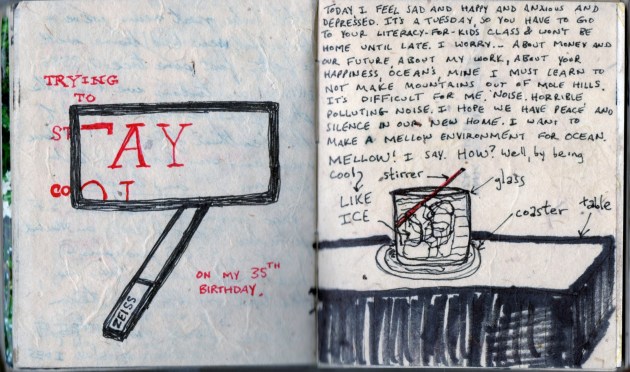 TRYING
TO
STAY
COOL
ZEISS
ON MY 35TH
BIRTHDAY.
TODAY I FEEL SAD AND HAPPY AND ANXIOUS AND
DEPRESSED. IT'S A TUESDAY, SO YOU HAVE TO GO
TO YOUR LITERACY-FOR-KIDS CLASS & WON'T BE
HOME UNTIL LATE. I WORRY... ABOUT MONEY AND
OUR FUTURE, ABOUT MY WORK, ABOUT YOUR
HAPPINESS, OCEAN'S, MINE. I MUST LEARN TO
NOT MAKE MOUNTAINS OUT OF MOLE HILLS.
IT'S DIFFICULT FOR ME. NOISE. HORRIBLE
POLLUTING NOISE. I HOPE WE HAVE PEACE AND
SILENCE IN OUR NEW HOME. I WANT TO
MAKE A MELLOW ENVIRONMENT FOR OCEAN.
MELLOW! I SAY. HOW? Well, by being
cool?
stirrer
glass
LIKE
ICE
coaster
table